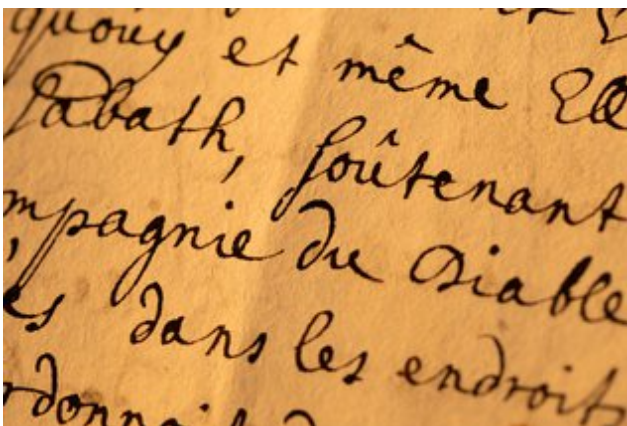 quouy et même
sabath, soûtenant
mpagnie du Diable
es dans les endroits
rdonnait